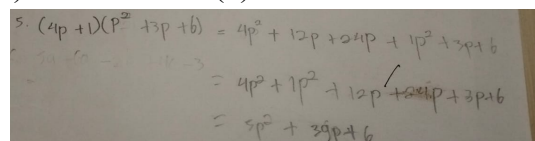 5. (4p+1)(p² +3p+6) = 4p² + 12p + 24p + 1p² + 3p+6
= 4p² + 1p² + 12p + 24p + 3p+6
= 5p² + 39p+6